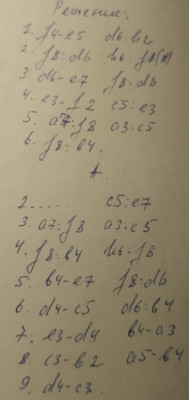 Решение:
1. f4-e5 d6:b2
2. f8:d6 h6-f8(A)
3. d6-e7 f8:d6
4. e3-f2 c5:e3
5. a7:f8 a3:c5
6. f8:b4.
А.
2..... c5:e7
3. a7:f8 a3:c5
4. f8:b4 h6-f8
5. b4-e7 f8:d6
6. d4-c5 d6:b4
7. e3-d4 b4-a3
8. c3-b2 a5-b4
9. d4-c3.